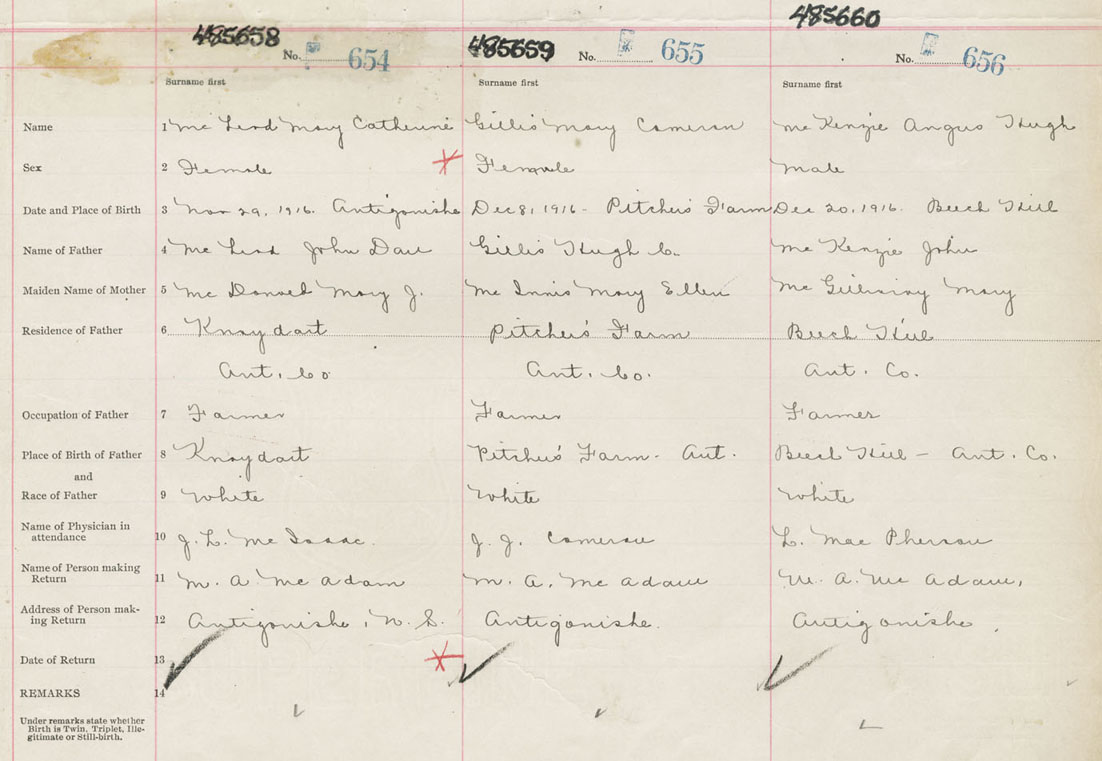 485658 485659 485660
No. 654 No. 655 No. 656
Surname first Surname first Surname first
Name 1 Mc Leod Mary Catherine Gillis Mary Cameron Mc Kenzie Angus Hugh
Sex 2 Female Female Male
Date and Place of Birth 3 Nov 29, 1916. Antigonishe Dec 8, 1916 - Pitcher's Farm Dec 20, 1916. Beech Hill
Name of Father 4 Mc Leod John Dan Gillis Hugh C. Mc Kenzie John
Maiden Name of Mother 5 Mc Donald Mary J. Mc Innis Mary Ellen Mc Gillivray Mary
Residence of Father 6 Knoydart Pitcher's Farm Beech Hill
Ant. Co. Ant. Co. Ant. Co.
Occupation of Father 7 Farmer Farmer Farmer
Place of Birth of Father 8 Knoydart Pitcher's Farm - Ant. Beech Hill - Ant. Co.
and
Race of Father 9 White White White
Name of Physician in
attendance 10 J. L. Mc Isaac. J. J. Cameron L. Mac Pherson
Name of Person making
Return 11 M. A. Mc Adam M. A. Mc Adam M. A. Mc Adam,
Address of Person mak-
ing Return 12 Antigonishe, N. S. Antigonishe. Antigonishe.
Date of Return 13
REMARKS 14
Under remarks state whether
Birth is Twin, Triplet, Ille-
gitimate or Still-birth.